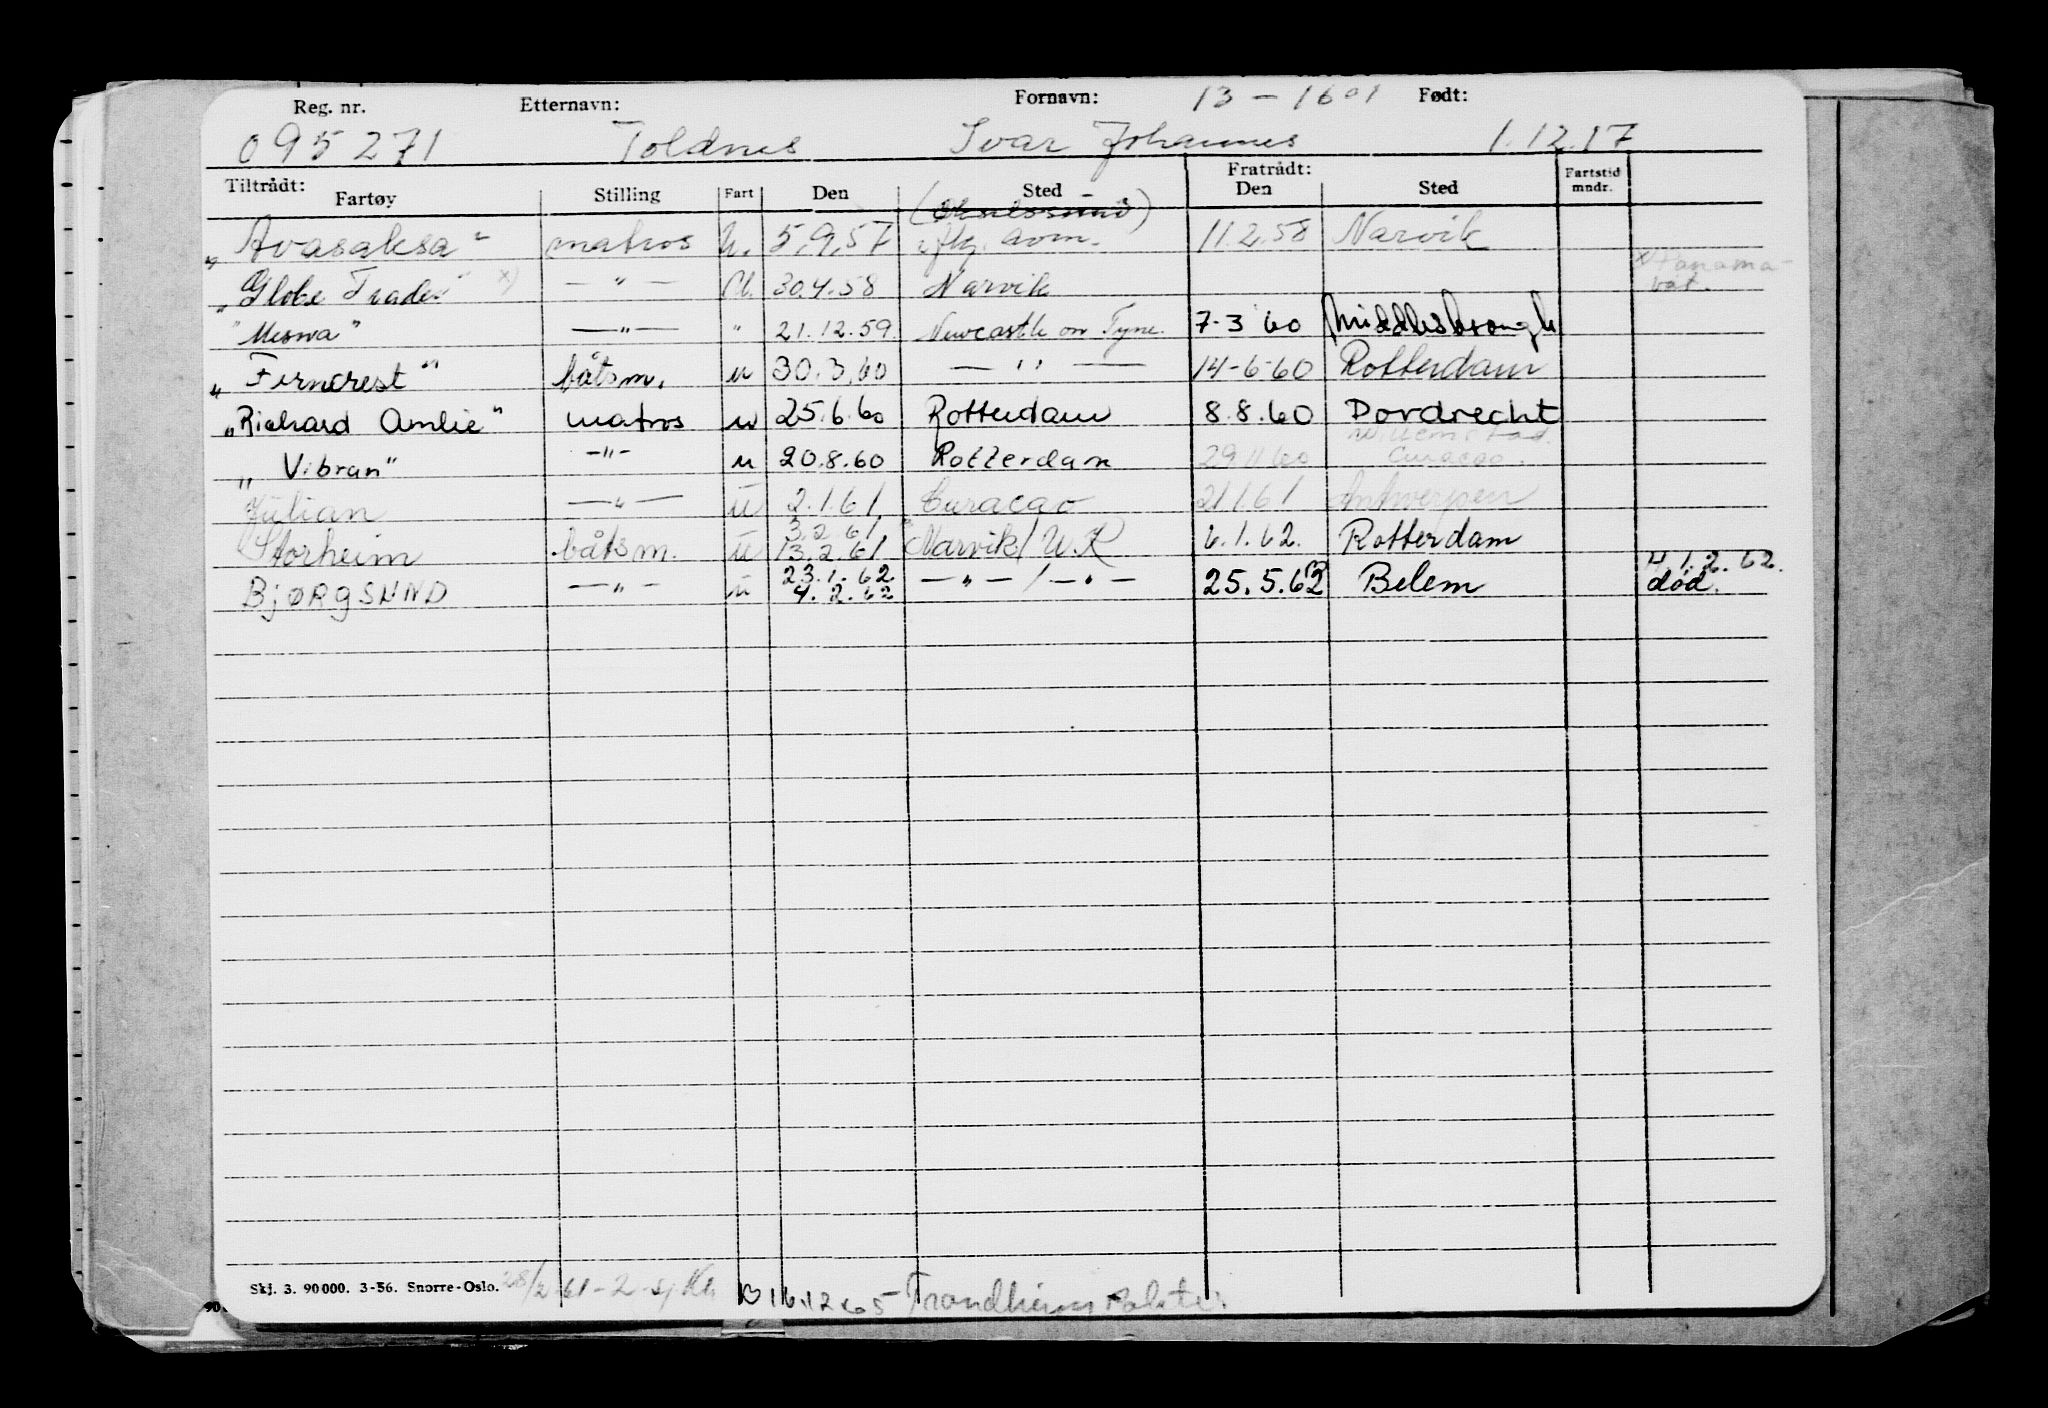 Reg. nr. Etternavn: Fornavn: 13 - 1601 Født:
095271 Toldnes Ivar Johannes 1.12.17
Tiltrådt: Fratrådt: Fartstid mndr.
Fartøy Stilling Fart Den Sted Den Sted
(Oxeløsund)
„Avasaksa" matros u. 5.9.57 11.2.58 Narvik
„Globe Trader" x) — " — U. 30.4.58 Narvik x) Panama-
båt.
"Mesna" — " — " 21.12.59 Newcastle on Tyne. 7-3 60 Middlesbrough
„Ferncrest" båtsm. u 30.3.60 — " — 14-6-60 Rotterdam
„Richard Amlie" matros u 25.6.60 Rotterdam 8.8.60 Dordrecht
Willemstad
„Vibran" - " - u 20.8.60 Rotterdam 29.11.60 Curacao.
Julian — " — u 2.1.61. Curacao 21.1.61 Antwerpen
3.2.61
Storheim båtsm. u 13.2.61 Narvik/U.K 6.1.62. Rotterdam
23.1.62 4.1.2.62.
BJØRGSUND — " — u 4.2.62 — " — / — " — 25.5.62 Belem død.
Skj. 3. 90000. 3-56. Snorre-Oslo. 28/2-61-2-sj 16.12.65 Trondheim